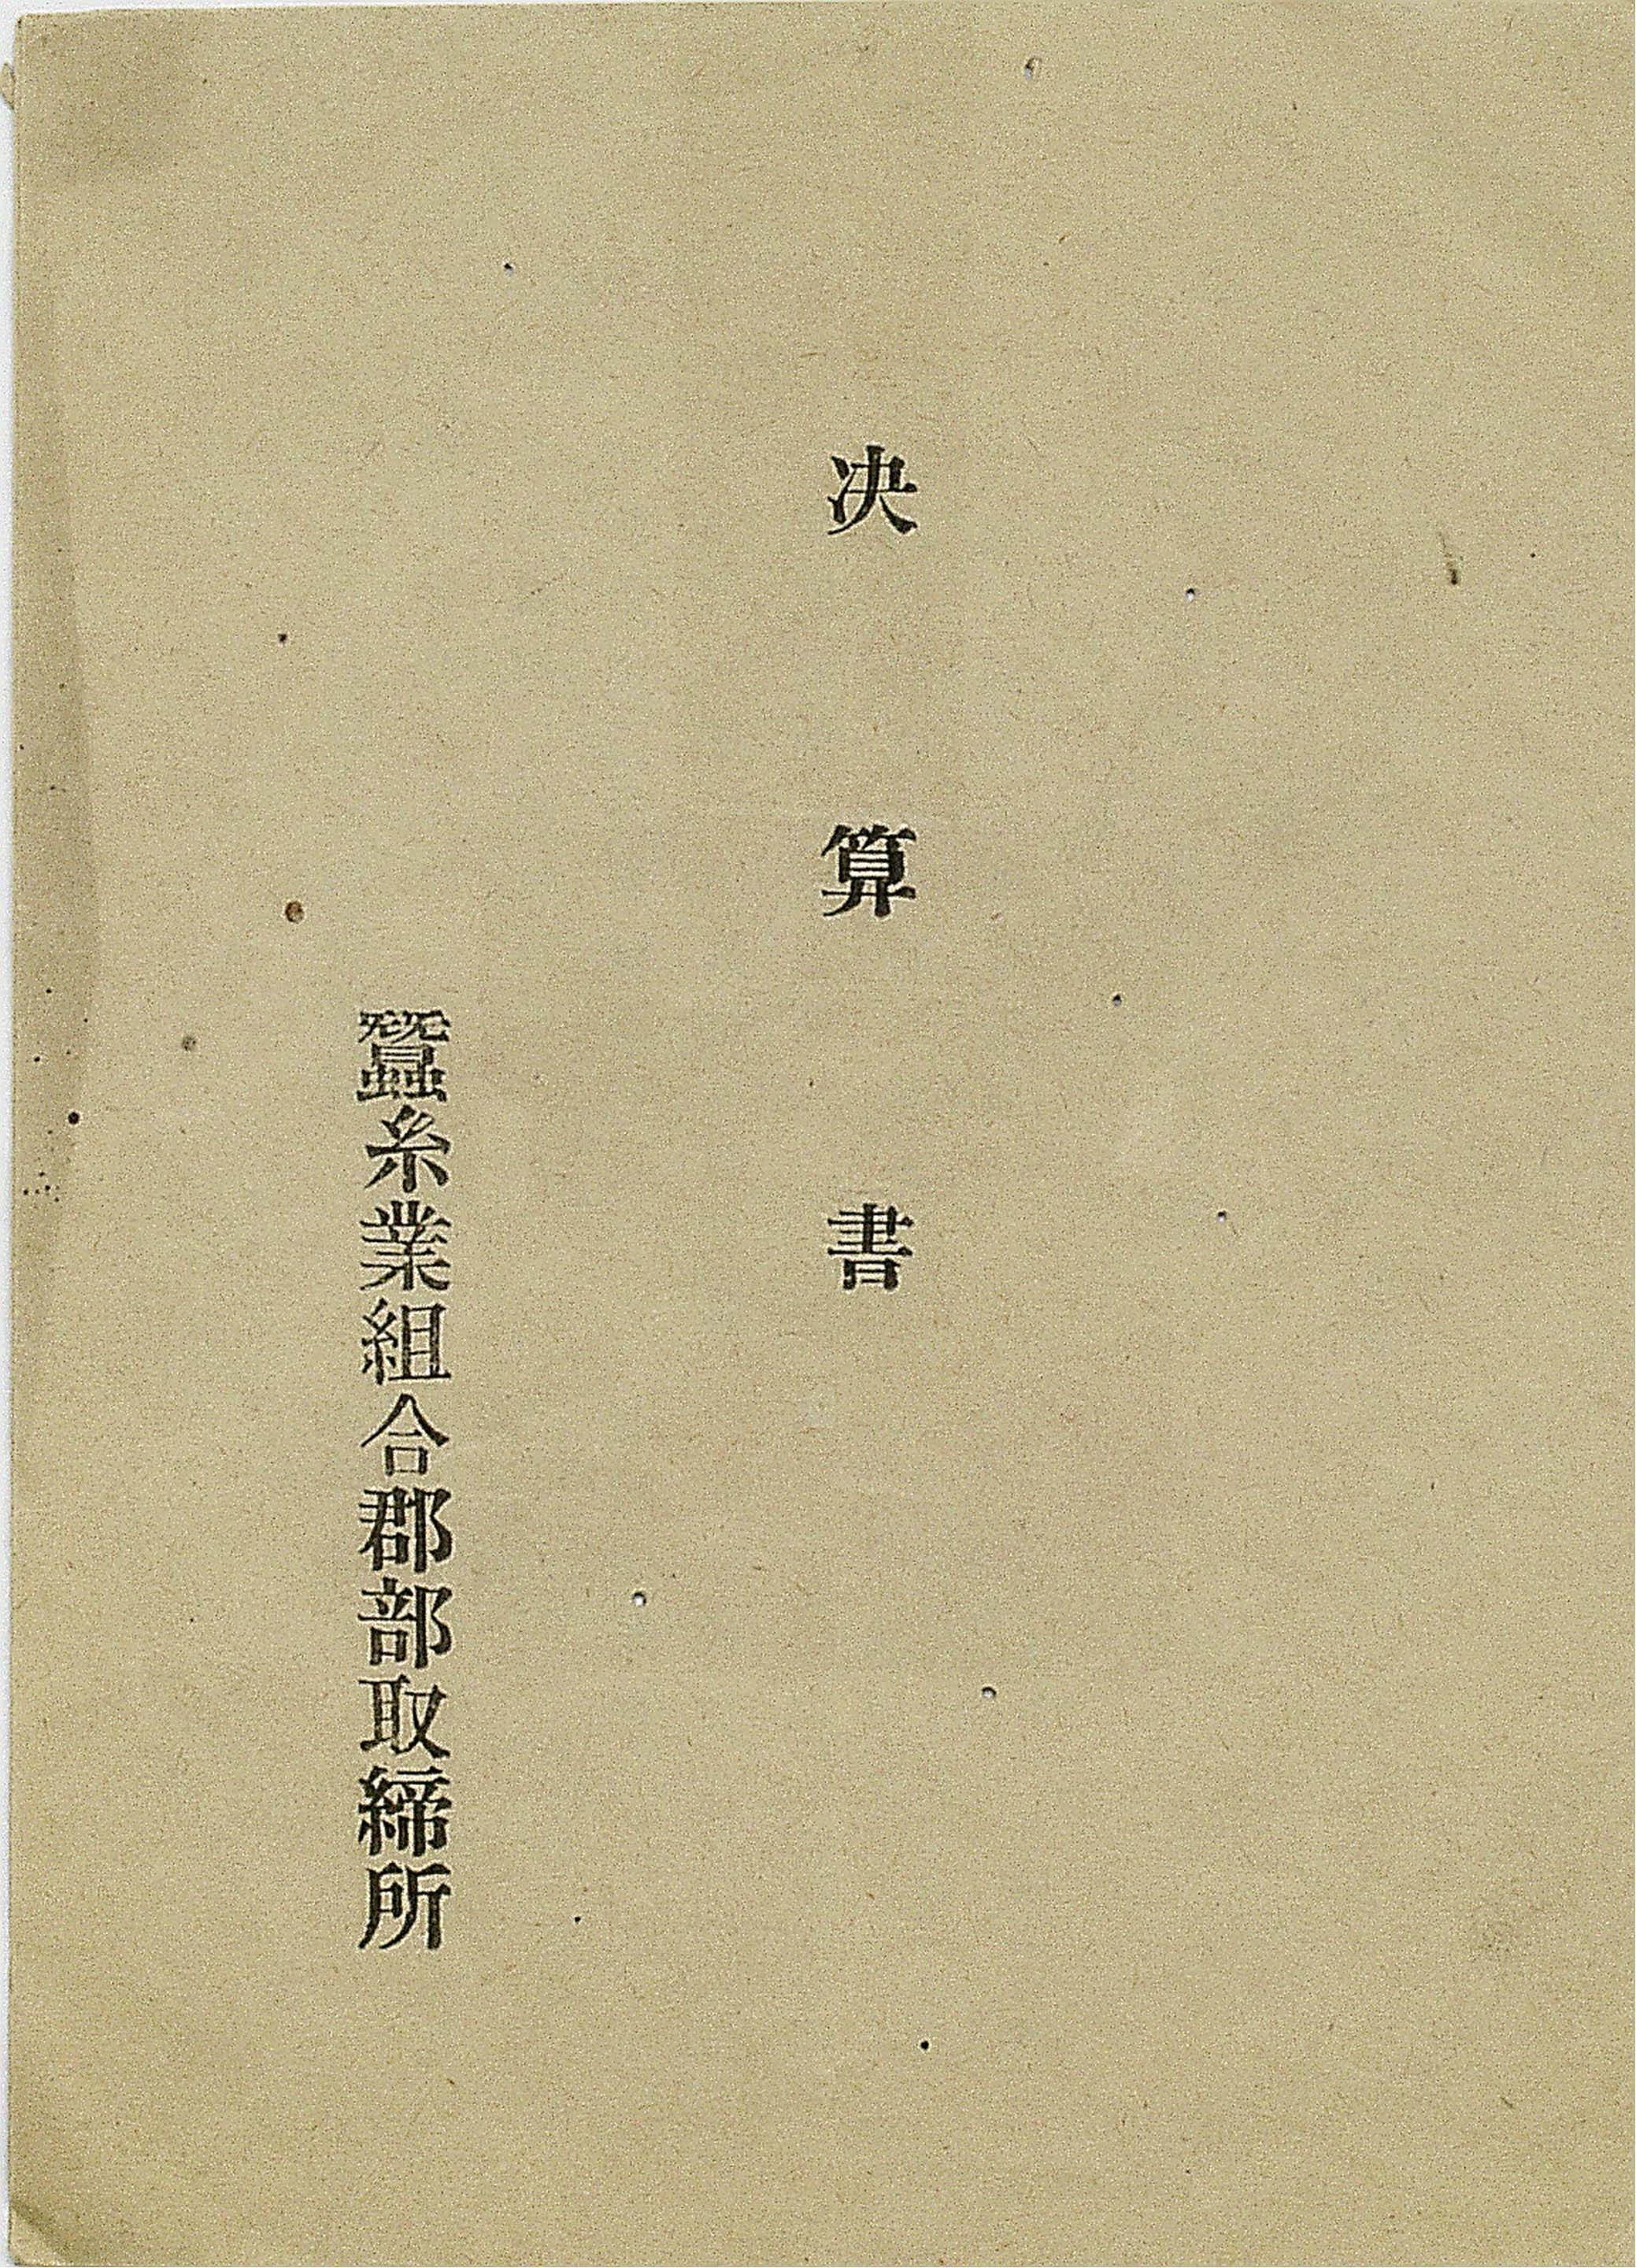 决算書
蠶糸業組合郡部取締所